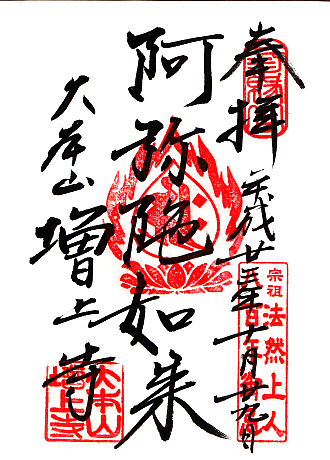 奉拝
平成廿五年十月廿九日
阿弥陀如来
大本山
増上寺
宗祖
法然上人
大本山
増上寺